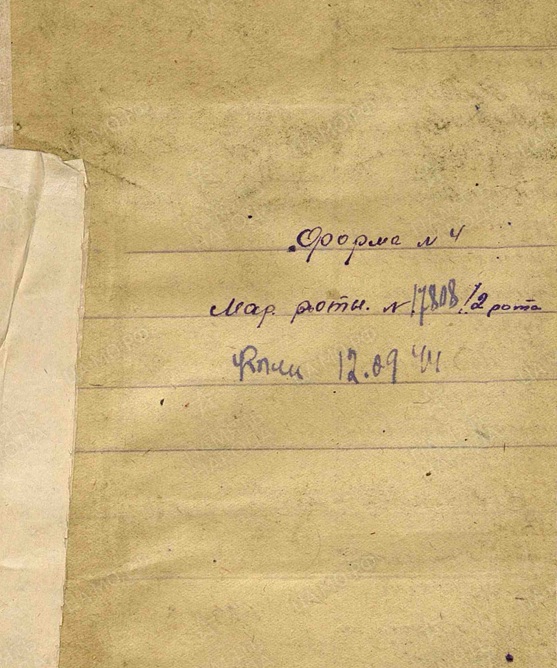 Форма № 4
Мар. роты. № 17808 / 2 рота
12.09 44